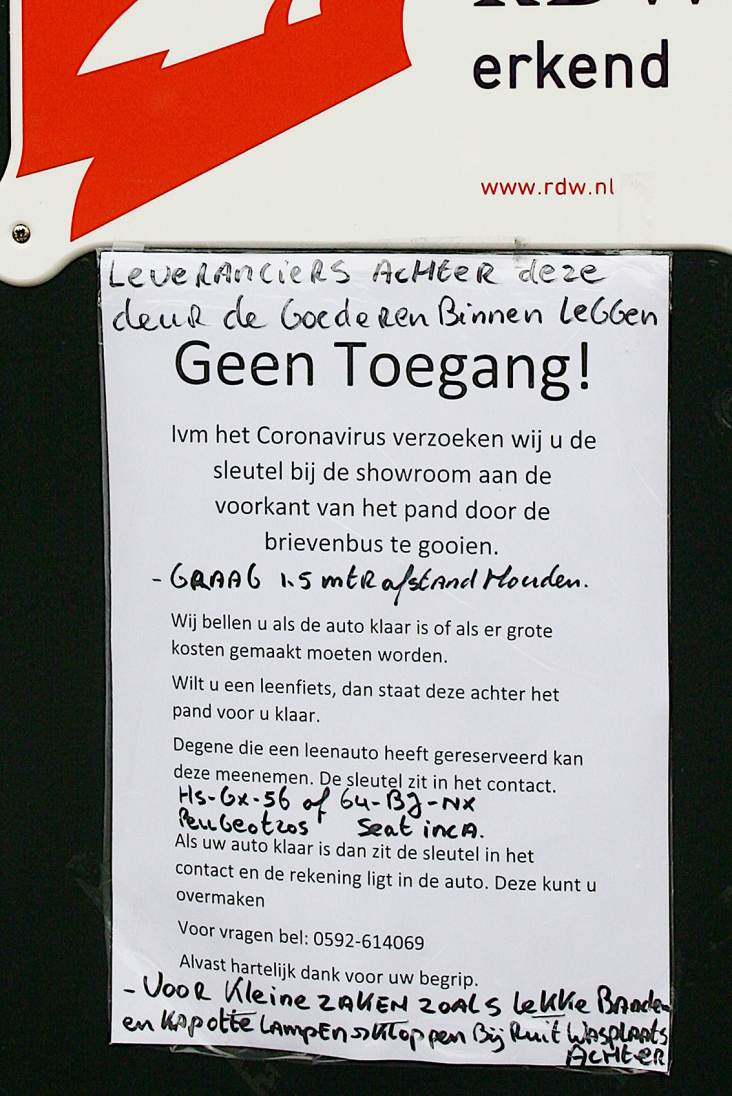 RDW
erkend
www.rdw.nl
LEVERANCIERS ACHTER deze
deur de Goederen Binnen leGGen
Geen Toegang!
Ivm het Coronavirus verzoeken wij u de
sleutel bij de showroom aan de
voorkant van het pand door de
brievenbus te gooien.
- GRAAG 1.5 mtR afstand Houden.
Wij bellen u als de auto klaar is of als er grote
kosten gemaakt moeten worden.
Wilt u een leenfiets, dan staat deze achter het
pand voor u klaar.
Degene die een leenauto heeft gereserveerd kan
deze meenemen. De sleutel zit in het contact.
HS-GX-56 of 64-BJ-NX
Peugeot 205 Seat incA.
Als uw auto klaar is dan zit de sleutel in het
contact en de rekening ligt in de auto. Deze kunt u
overmaken
Voor vragen bel: 0592-614069
Alvast hartelijk dank voor uw begrip.
- VOOR Kleine ZAKEN ZOALS leKKe BAnden
en KAPotte LAMPEN >> Kloppen Bij Ruit WASPLAATS
ACHteR